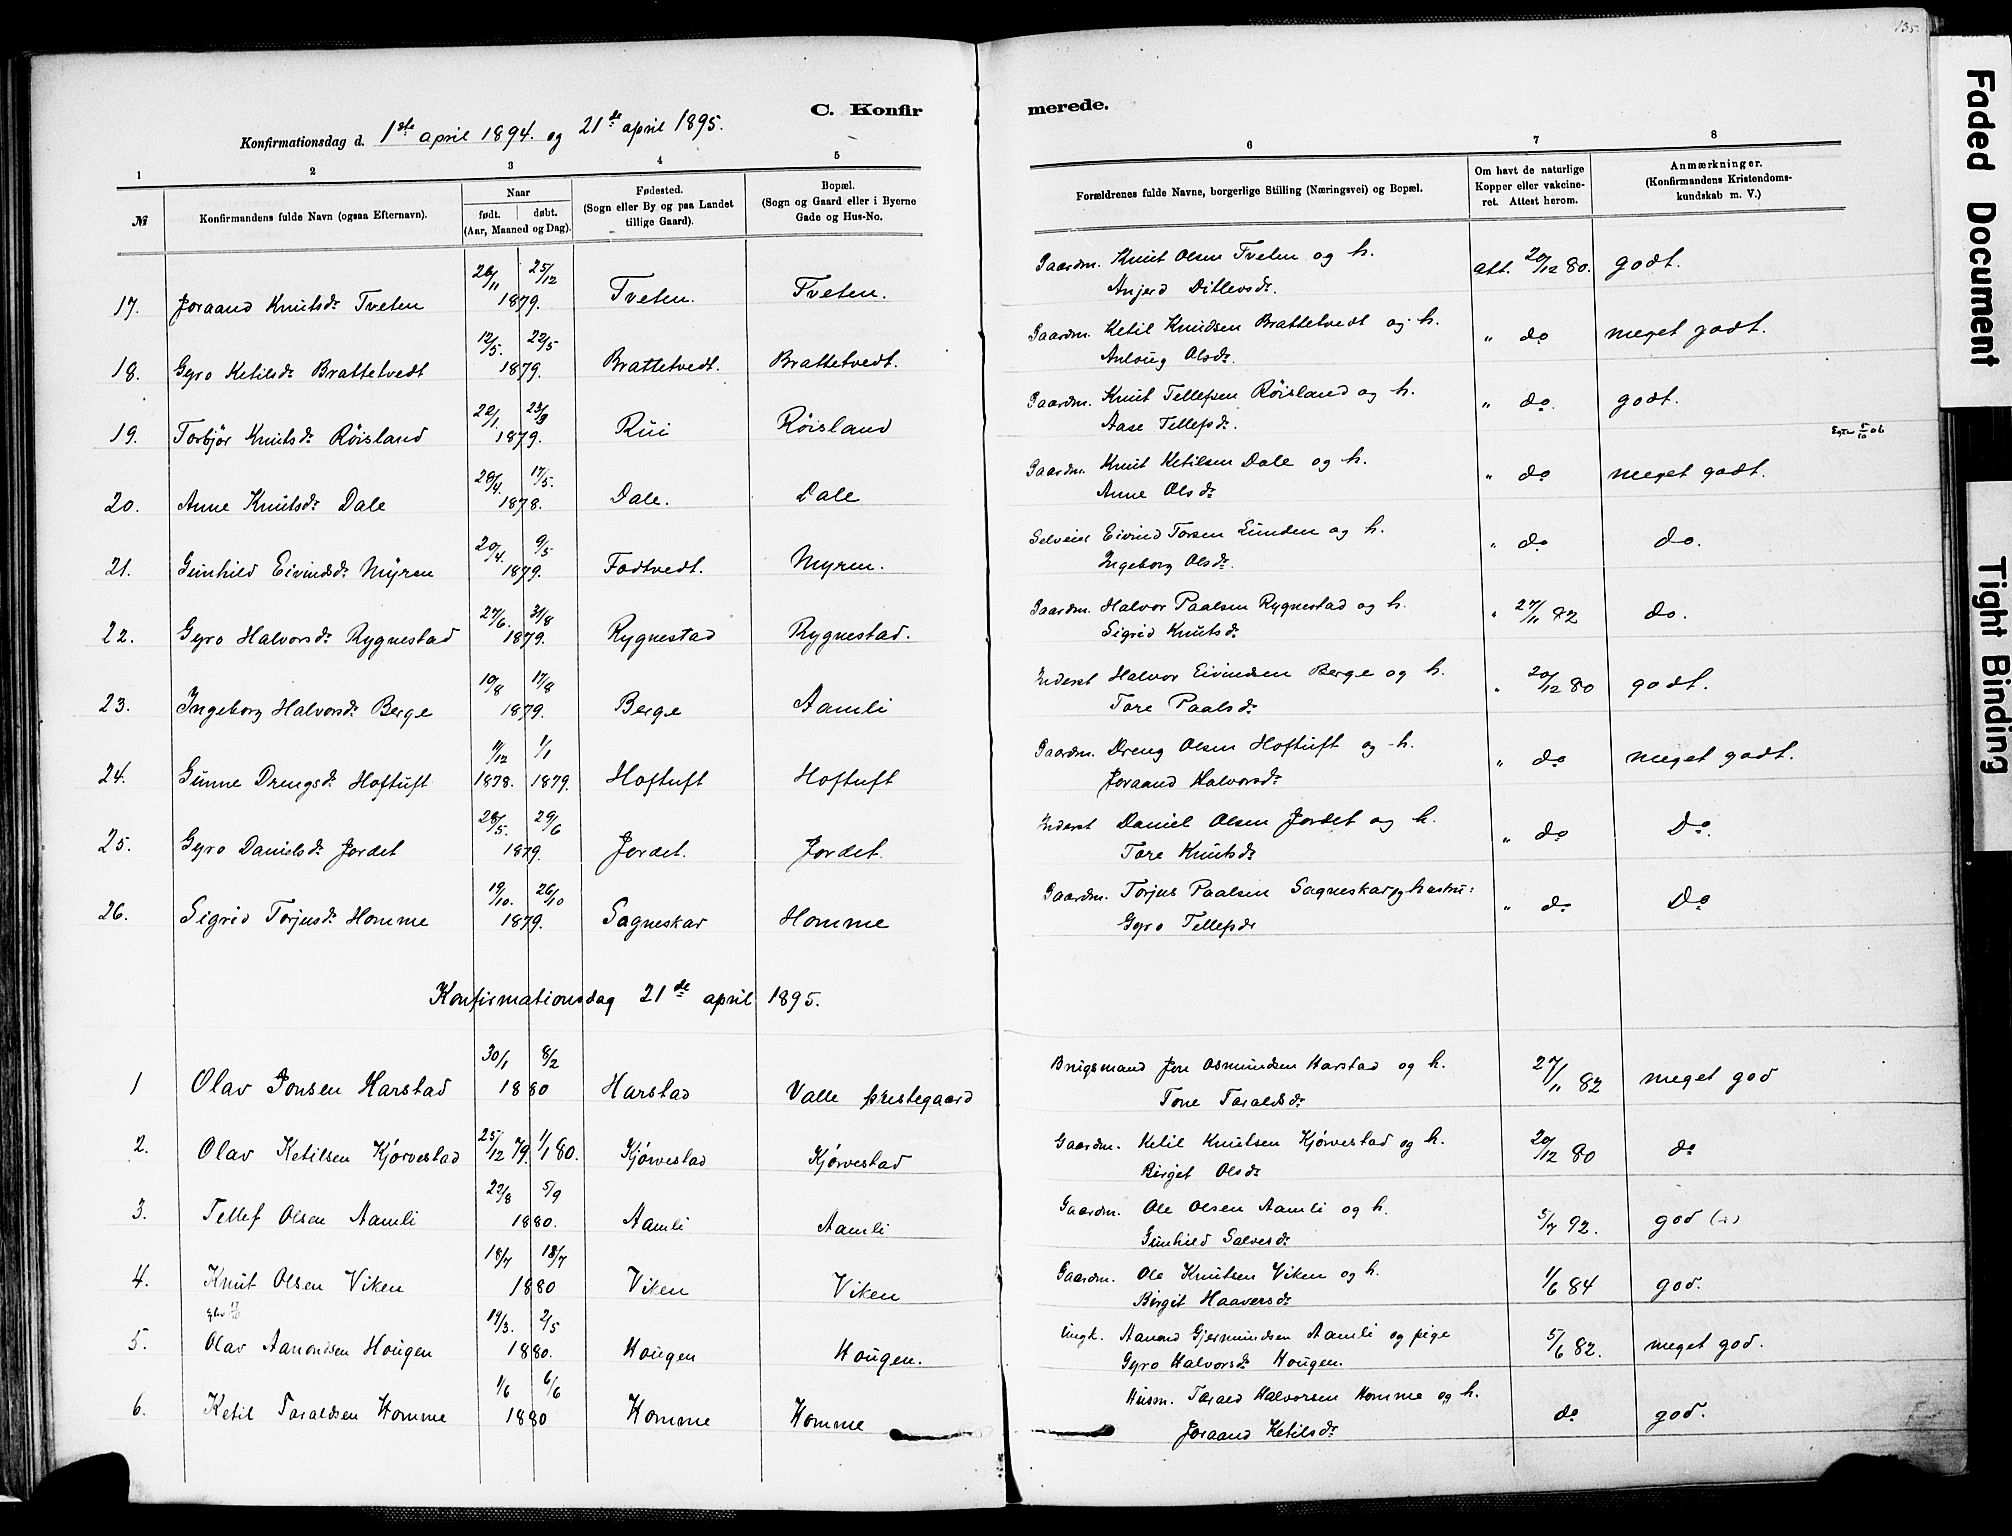 135.
C. Konfirmerede.
Konfirmationsdag d. 1ste april 1894. og 21de april 1895.
1 2 3 4 5 6 7 8
№
Konfirmandens fulde Navn (ogsaa Efternavn).
Naar
født. døbt.
(Aar, Maaned og Dag).
Fødested.
(Sogn eller By og paa Landet
tillige Gaard).
Bopæl.
(Sogn og Gaard eller i Byerne
Gade og Hus-No.
Forældrenes fulde Navne, borgerlige Stilling (Næringsvei) og Bopæl.
Om havt de naturlige
Kopper eller vakcine-
ret. Attest herom.
Anmærkninger.
(Konfirmandens Kristendoms-
kundskab m. V.)
17. Joraand Knutsdr Tveten 26/11 25/12 1879. Tveten. Tveten. Gaardm. Knut Olsen Tveten og h. att. 20/12 80. godt.
Anjerd Ditlevsdr.
18. Gyro Ketilsdr Brattetvedt 12/5. 22/5 1879. Brattetvedt. Brattetvedt. Gaardm. Ketil Knudsen Brattetvedt og h. " do meget godt.
Anloug Olsdr.
19. Torbjør Knutsdr Røisland 22/1. 23/3 1879. Rui Røisland Gaardm. Knut Tellefsen Røisland og h. " do. godt.
Aase Tellefsdr.
5/10 06
20. Anne Knutsdr Dale 28/4. 17/5. 1878. Dale. Dale Gaardm. Knut Ketilsen Dale og h. " do meget godt.
Anne Olsdr
21. Gunhild Eivindsdr Myren 20/4. 9/5 1879. Fodtvedt. Myren. Selveier Eivind Torsen Lunden og h. " do do.
Ingeborg Olsdr.
22. Gyro Halvorsdr Rygnestad 27/6. 31/8 1879. Rygnestad Rygnestad. Gaardm. Halvor Paalsen Rygnestad og h. " 27/11 82 do.
Sigrid Knutsdr
23. Ingeborg Halvorsdr Berge 10/8 17/8 1879. Berge Aamli Inderst Halvor Eivindsen Berge og h. " 20/12 80 godt.
Tore Paalsdr
24. Gunne Drengsdr Hoftuft 11/12 1/1 1878. 1879. Hoftuft Hoftuft Gaardm. Dreng Olsen Hoftuft og h. " do meget godt.
Joraand Halvorsdr
25. Gyro Danielsdr Jordet 28/5. 29/6 1879. Jordet. Jordet. Inderst Daniel Olsen Jordet og h. " do Do.
Tore Knutsdr
26. Sigrid Torjusdr Homme 19/10. 26/10 1879. Sagneskar Homme Gaardm. Torjus Paalsen Sagneskar og hustru: " do Do
Gyro Tellefsdr
Konfirmationsdag 21de april 1895.
1 Olav Jonsen Harstad 30/1 8/2 1880 Harstad Valle prestegaard Brugsmand Jon Osmundsen Harstad og h. 27/11 82 meget god
Tone Taraldsdr
2. Olav Ketilsen Kjørvestad 25/12 79. 1/1 80. Kjørvestad Kjørvestad Gaardm. Ketil Knutsen Kjørvestad og h. 20/12 80 do
Birget Olsdr
3. Tellef Olsen Aamli 22/8 5/9 1880. Aamli Aamli Gaardm. Ole Olsen Aamli og h. 5/7 92. god
Gunhild Salvesdr
4. Knut Olsen Viken 18/7 18/7 1880 Viken Viken Gaardm. Ole Knutsen Viken og h. 1/6 84 god.
Birgit Haavorsdr
5. Olav Aanondsen Hougen 19/3. 2/5 1880. Hougen Hougen. Ungk. Aanond Gjermundsen Aamli og pige 5/6 82. meget god.
Gyro Halvorsdr Hougen.
6. Ketil Taraldsen Homme 1/6 6/6 1880 Homme Homme Husm. Tarald Halvorsen Homme og h. do god.
Joraand Ketilsdr
Faded Document
Tight Binding